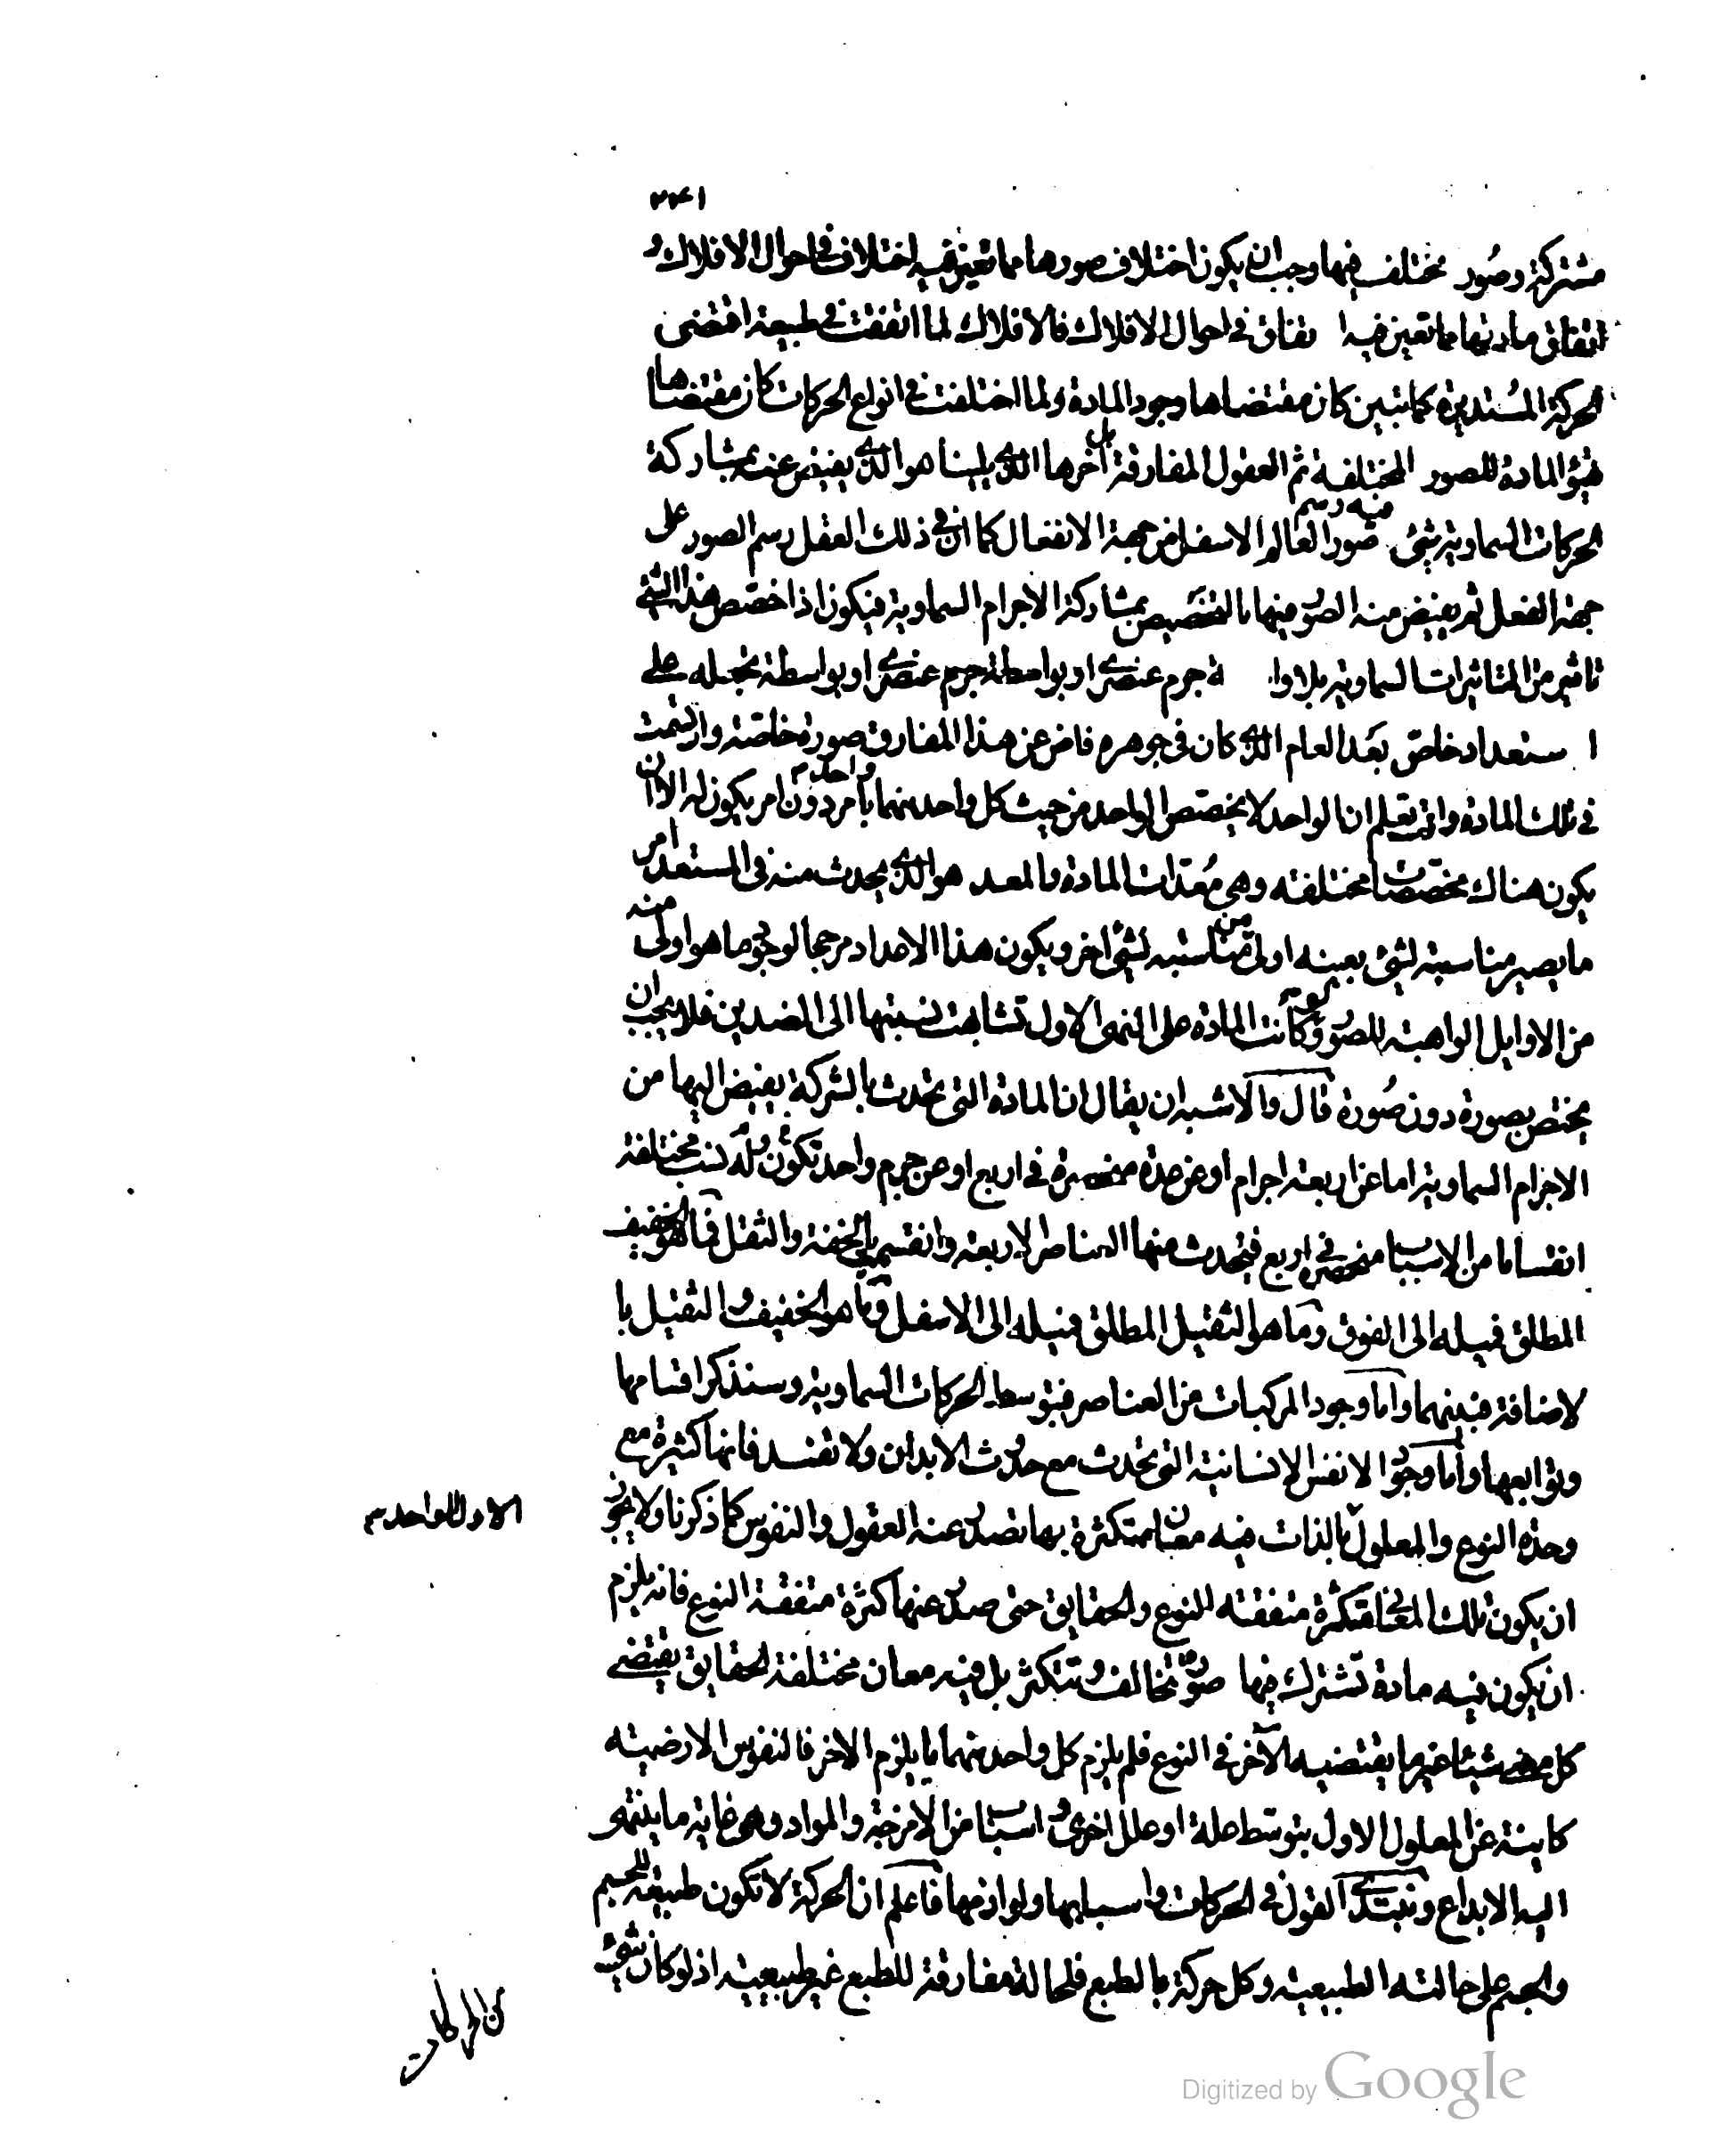 ٣٤١
مشتركة وصُور مختلف فيها وجب ان يكون اختلاف صورها مما تعين فيه اختلاف في احوال الافلاك و
اتفاق مادتها مما تعين فيه ا تفاق في احوال الافلاك فالافلاك لما اتفقت في طبيعة اقتضى
الحركة المُستديرة كما تبين كان مقتضاها وجود المادة ولما اختلفت في انواع الحركات كان مقتضاها
تهيؤ المادة للصور المختلفة ثم العقول المفارقة بل اخرها الذي يلينا هو الذي يفيض عنه بمشاركة
الحركات السماوية شئ فيه رسم صور العالم الاسفل من جهة الانفعال كما ان في ذلك العقل رسم الصور على
جهة الفعل ثم يفيض منه الصور فيها بالتخصيص بمشاركة الاجرام السماوية فيكون اذا خصّص هذا الشئ
تاثير من التاثيرات السماوية بلا وا ة جرم عنصري او بواسطة جرم عنصري او بواسطة تجعله على
ا ستعداد خاصّ بعد العام الذي كان في جوهره فاض عن هذا المفارق صورة خاصّة وارتسمت
في تلك المادة وانت تعلم ان الواحد لا يخصّص الواحد من حيث كل واحد منهما واحد بامر دون امر يكون له الا ان
يكون هناك مخصّصات مختلفته وهي مُعدّات المادة والمعد هو الذي يحدث منه في المستعد امر
ما يصير مناسبته لشئ بعينه اولى من مناسبته لشئ اخر ويكون هذا الاعداد مرجحا لوجود ما هو اولى منه
من الاوايل الواهبة للصور ولو كانت المادة على التهئ الاول تشابهت نسبتها الى الضدين فلا يجب ان
يختص بصورة دون صُورة قال والاشبه ان يقال ان المادة التي تحدث بالشركة يفيض اليها من
الاجرام السماوية اما عن اربعة اجرام او عن عدة منحصرة في اربع او عن جرم واحد تكون له نسب مختلفة
انقساما من الاسباب منحصرة في اربع فيحدث منها العناصر الاربعة وانقسمت بالخفة والثقل فما هو الخفيف
المطلق فميله الى الفوق وما هو الثقيل المطلق فميله الى الاسفل وما هو الخفيف والثقيل با
لاضافة فبينهما واما وجود المركبات من العناصر فبتوسط الحركات السماوية وسنذكر اقسامها
وتوابعها واما وجود الانفس الانسانية التي تحدث مع حدوث الابدان ولا تفسد فانها كثيرة مع
وحدة النوع والمعلول بالذات فيه معان متكثرة بها تصدر عنه العقول والنفوس كما ذكرنا ولا يجوز
الاول الواحد
ان يكون تلك المعاني متكثرة متفقته النوع والحقايق حتى صدر عنها كثرة متفقة النوع فانه يلزم
ان يكون فيه مادة تشترك فيها صور تتخالف وتتكثر بل فيه معان مختلفة الحقايق يقتضي
كل معنى شيئا غير ما يقتضيه الاخر في النوع فلم يلزم كل واحد منهما ما يلزم الاخر فالنفوس الارضيته
كاينة عن المعلول الاول بتوسّط علة او علل اخرى واسباب من الامزجة والمواد وهي غاية ما ينتهي
اليه الابداع ونبتدئ القول في الحركات واسبابها ولوازمها فاعلم ان الحركة لا تكون طبيعية للجسم
والجسم على حالته الطبيعيته وكل حركة بالطبع فلحالة مفارقة للطبع غير طبيعيته اذ لو كان شئ
من الحركات
Digitized by Google